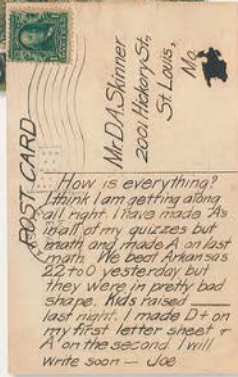 POST CARD
Mr. D.A. Skinner
2001 Hickory St.,
St. Louis,
Mo.
How is everything?
I think I am getting along
all right. I have made As
in all of my quizzes but
math and made A on last
math. We beat Arkansas
22 to 0 yesterday but
they were in pretty bad
shape. Kids raised ____
last night. I made D+ on
my first letter sheet +
A on the second. I will
write soon — Joe